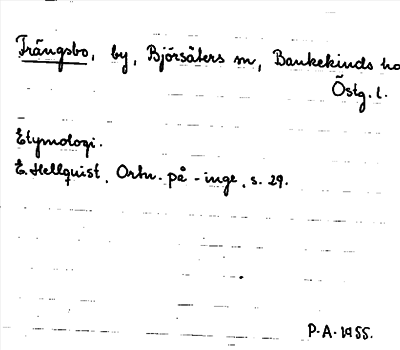 Trängsbo, by, Björsäters sn, Bankekinds
Östg. l.
Etymologi.
E. Hellquist, Ortn. på -inge, s. 29.
P.A. 1955.